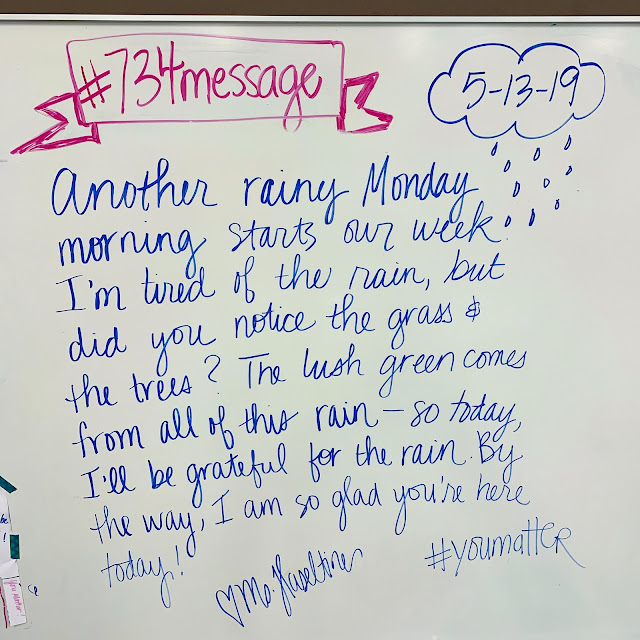 #734message
5-13-19
Another rainy Monday
morning starts our week.
I'm tired of the rain, but
did you notice the grass &
the trees? The lush green comes
from all of this rain - so today,
I'll be grateful for the rain. By
the way, I am so glad you're here
today!
#youmatter